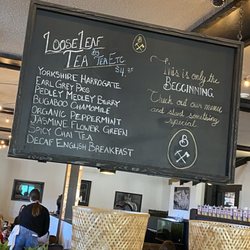 Loose Leaf
by Tea Etc
Tea $4.25
Yorkshire Harrogate
Earl Grey Tea
Pedley Medley Berry
Bugaboo Chamomile
Organic Peppermint
Jasmine Flower Green
Spicy Chai Tea
Decaf English Breakfast
This is only the
BEGGINING.
Check out our menu
and start something
special
B
B